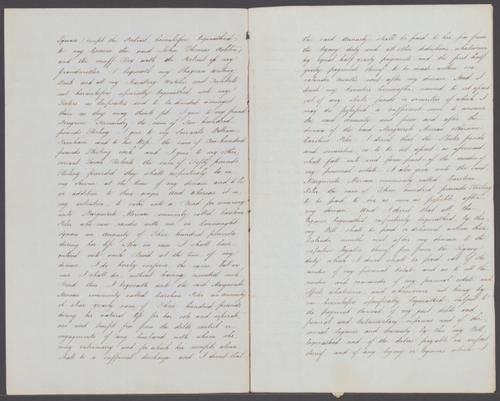 Spoons) except the
to my
and the snuff Box with the
Grandmother. I bequeath my
Desk and all my
not hereinbefore specifically bequeathed unto my
Sisters as
them as they may think fit I give to my friend
the sum of Two hundred
pounds Sterling I give to my Servants William
and to his Wife the sum of One hundred
pounds Sterling each and I give to my other
servant the sum of Fifty pounds
Sterling provided they shall respectively be in
my service at the time of my decease and to be
in addition to their wages And Whereas it is
my intention to enter into a Bond for securing
unto Margarete commonly called Caroline
who now resides with me in
Square an Annuity of Three hundred pounds
during her life Now in case I shall have
entered into such Bond at the time of my
decease I do hereby confirm the same but in
case I shall die without having executed such
Bond then I bequeath unto the said Margarete
commonly called Caroline an annuity
or clear yearly sum of Three hundred pounds
during her natural life for her sole and separate
use and benefit free from the debts control or
engagements of any husband with whom she
may intermarry and for which her receipts alone
shall be a sufficient discharge and I direct that
the said Annuity shall be paid to her free from
the legacy duty and all other deductions whatsoever
by equal half yearly payments and the first half
yearly payment thereof to be made within six
calendar months next after my decease And I
direct my Executors hereinafter named to set apart
out of my stocks funds or securities of which I
may be possessed a sufficient sum to answer
the said Annuity and from and after the
decease of the said Margarete
Caroline I direct that the Stocks funds
and securities so to be set apart as aforesaid
shall fall into and form part of the residue of
my personal estate I also give unto the said
Margarete commonly called Caroline
the sum of Three hundred pounds Sterling
to be paid to her as soon as possible after
my decease And I direct that all the
legacies bequeathed respectively by this
my Will shall be paid or delivered within three
Calendar months next after my decease to the
respective legatees thereof free from the legacy
duty which I direct shall be paid out of the
residue of my personal Estate and as to all the
residue and remainder of my personal estate and
effects whatsoever and wheresoever not being by
me hereinbefore specifically bequeathed subject to
the payment thereout of my just debts and
funeral and testamentary expenses and of the
several legacies and Annuities by this my Will
bequeathed and of the duties payable in respect
thereof and of any legacy or legacies which I